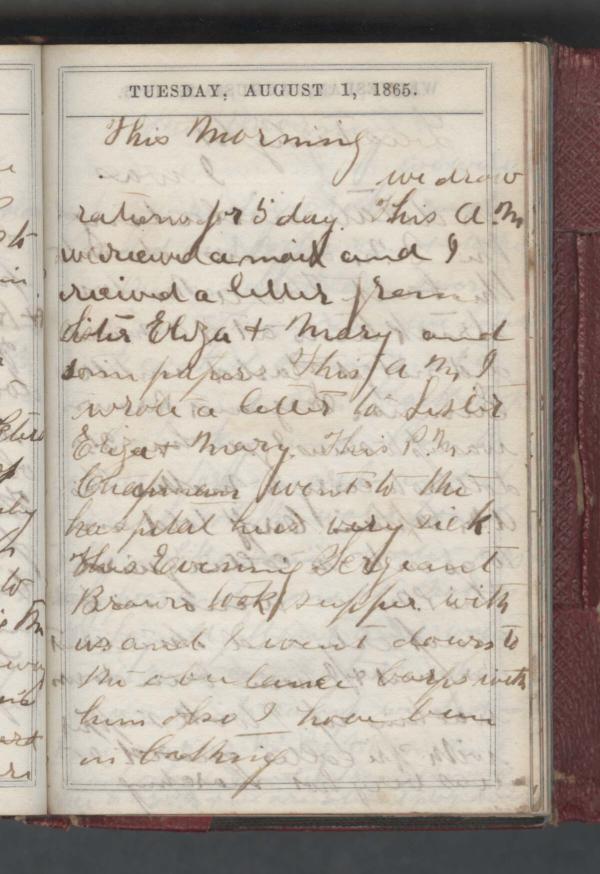 TUESDAY, AUGUST 1, 1865.
This Morning
we drow
rations for 5 day. This A.M
we recieved a mail and I
recived a letter from
Sister Eliza & Mary and
som papers This A M I
wrote a letter to Sister
Eliza & Mary. This P.M
Chapman went to the
hospital he is very sick
this Evening Sergeant
Brown took supper with
us and I went down to
the abulance Corps with
him also I have been
in bathing